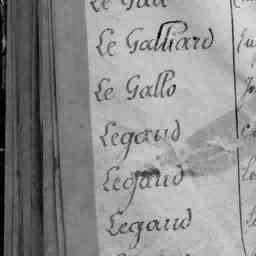 Le Galliard
Le Gallo
Legaud
Legaud
Legaud